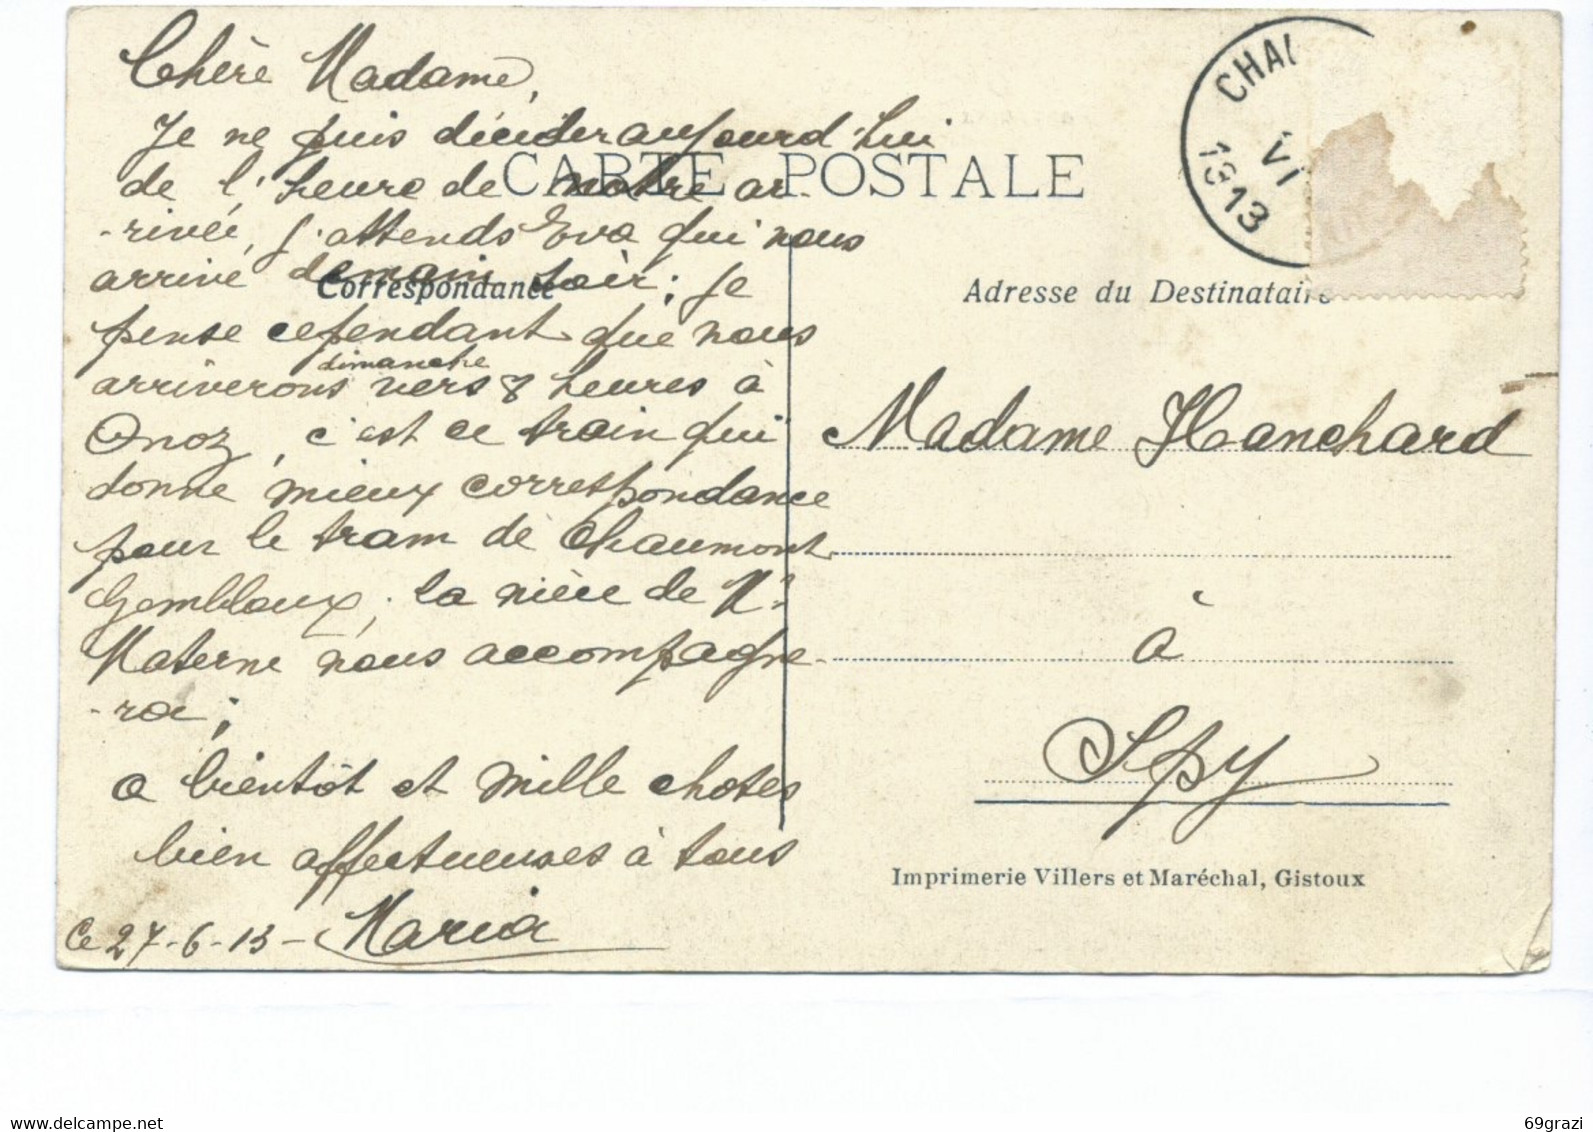 Chère Madame,
Je ne puis décider aujourd'hui
de l'heure de notre ar-
-rivée, j'attends Eva qui nous
arrive demain soir; je
pense cependant que nous
dimanche
arriverons vers 8 heures à
Onoz, c'est ce train qui
donne mieux correspondance
pour le tram de Chaumont
Gembloux; la nièce de Mr
Materne nous accompagne-
-ra;
a bientôt et mille choses
bien affectueuses à tous
Ce 27-6-13- Maria
CARTE POSTALE
Correspondance
CHAU
VI
1913
Adresse du Destinataire
Madame Hanchard
à
Spy
Imprimerie Villers et Maréchal, Gistoux
www.delcampe.net
69grazi